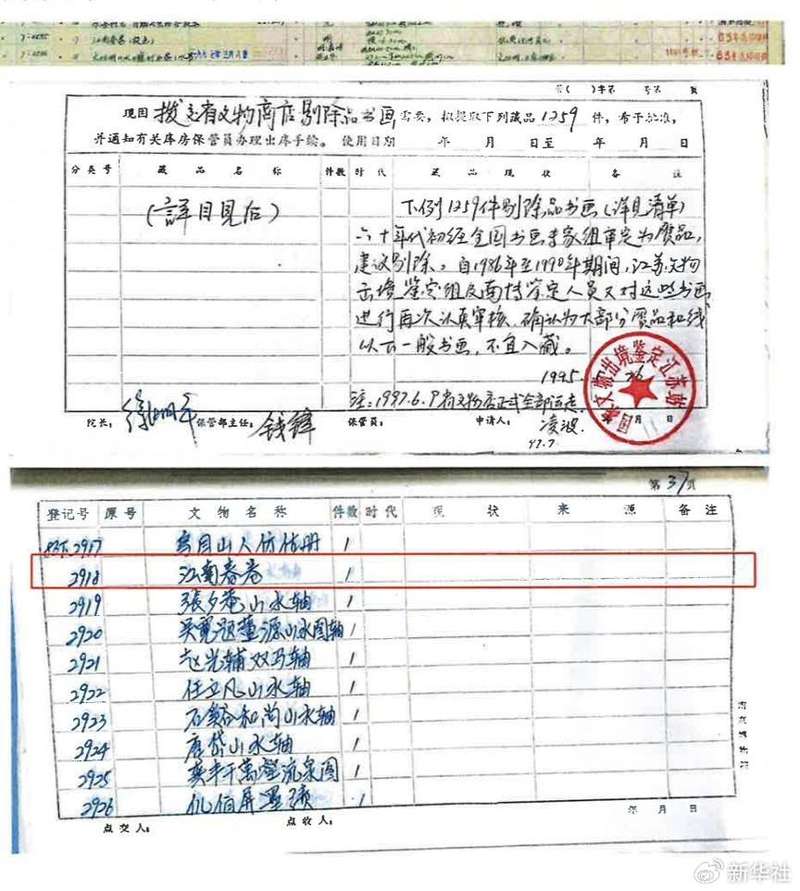 江南春卷
第( )字第 号第 页
现因 拨交省文物商店剔除品书画 需要，拟提取下列藏品 1259 件，希予批准，
并通知有关库房保管员办理出库手续。 使用日期 年 月 日至 年 月 日
分类号 藏品名称 件数 时代 藏品现状 备注
(詳目見后)
下例1259件剔除品书画(详见清单)
六十年代初经全国书画专家组审定为赝品,
建议剔除。自1986年至1990年期间,江苏文物
出境鉴定组及南博鉴定人员又对这些书画
进行再次认真审核,确认为大部分赝品和线
以下一般书画,不宜入藏。
1995
注:1997.6.9省文物店正式全部运走
院长： 徐湖平 保管部主任： 钱锋 保管员： 申请人： 凌波 月 日
97.7.
文物出境鉴定江苏站
第37页
登记号 原号 文物名称 件数 时代 现状 来源 备注
2917 山人仿古册 1
2918 江南春卷 1
2919 張夕菴山水轴 1
2920 董源山水图轴 1
2921 赵光辅双马轴 1
2922 任立凡山水轴 1
2923 石谿和尚山水轴 1
2924 唐岱山水轴 1
2925 千萬壑流泉图 1
2926 仉伯屏墨 1
年 月 日
点交人： 点收人：
新华社